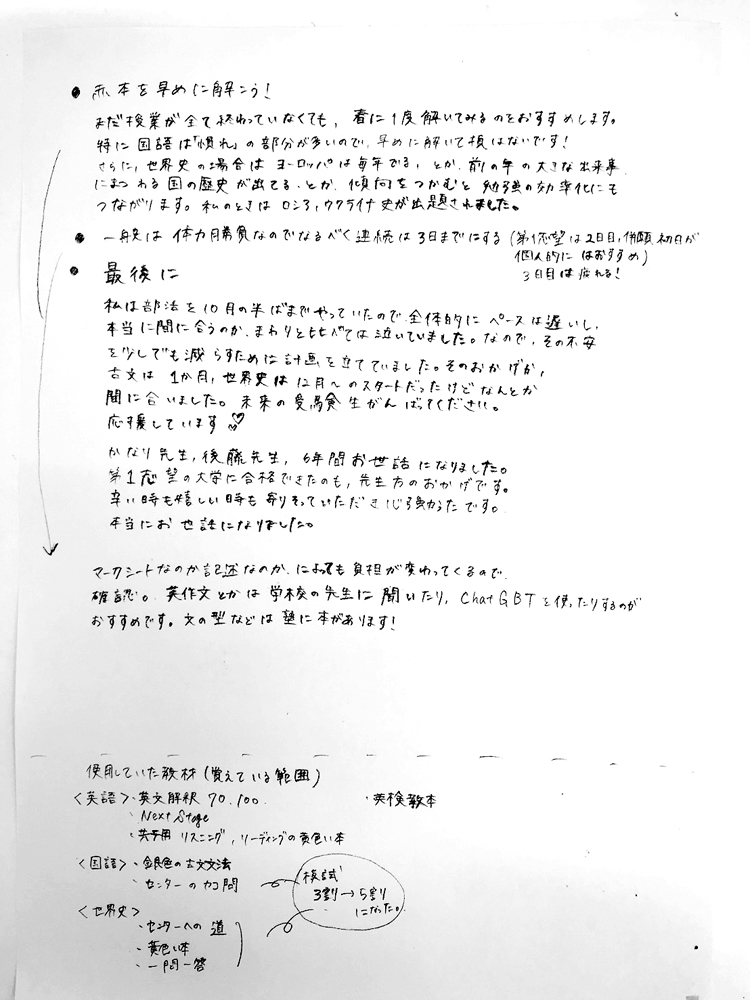 ● 赤本を早めに解こう!
まだ授業が全て終わっていなくても、春に1度解いてみるのをおすすめします。
特に国語は「慣れ」の部分が多いので、早めに解いて損はないです!
さらに、世界史の場合はヨーロッパは毎年でる、とか、前の年の大きな出来事
にまつわる国の歴史が出てる、とか、傾向をつかむと勉強の効率化にも
つながります。私のときはロシア、ウクライナ史が出題されました。
● 一般は体力勝負なのでなるべく連続は3日までにする (第1志望は2日目、併願初日が
個人的にはおすすめ)
3日目は疲れる!
● 最後に
私は部活を10月の半ばまでやっていたので、全体的にペースは遅いし、
本当に間に合うのか、まわりと比べては泣いていました。なので、その不安
を少しでも減らすために計画を立てていました。そのおかげか、
古文は1か月、世界史は12月〜のスタートだったけどなんとか
間に合いました。未来の受験生がんばってください。
応援しています♡
かなり先生、後藤先生、6年間お世話になりました。
第1志望の大学に合格できたのも、先生方のおかげです。
辛い時も嬉しい時も寄りそっていただき心強かったです。
本当にお世話になりました。
マークシートなのか記述なのか、によっても負担が変わってくるので、
確認。英作文とかは学校の先生に聞いたり、ChatGBTを使ったりするのが
おすすめです。文の型などは塾に本があります!
使用していた教材(覚えている範囲)
〈英語〉・英文解釈 70.100. ・英検教本
・Next Stage
・リスニング、リーディングの黄色い本
〈国語〉・銀色の古文文法
・センターのカコ問
模試
3割→5割
になった。
〈世界史〉
・センターへの道
・黄色い本
・一問一答